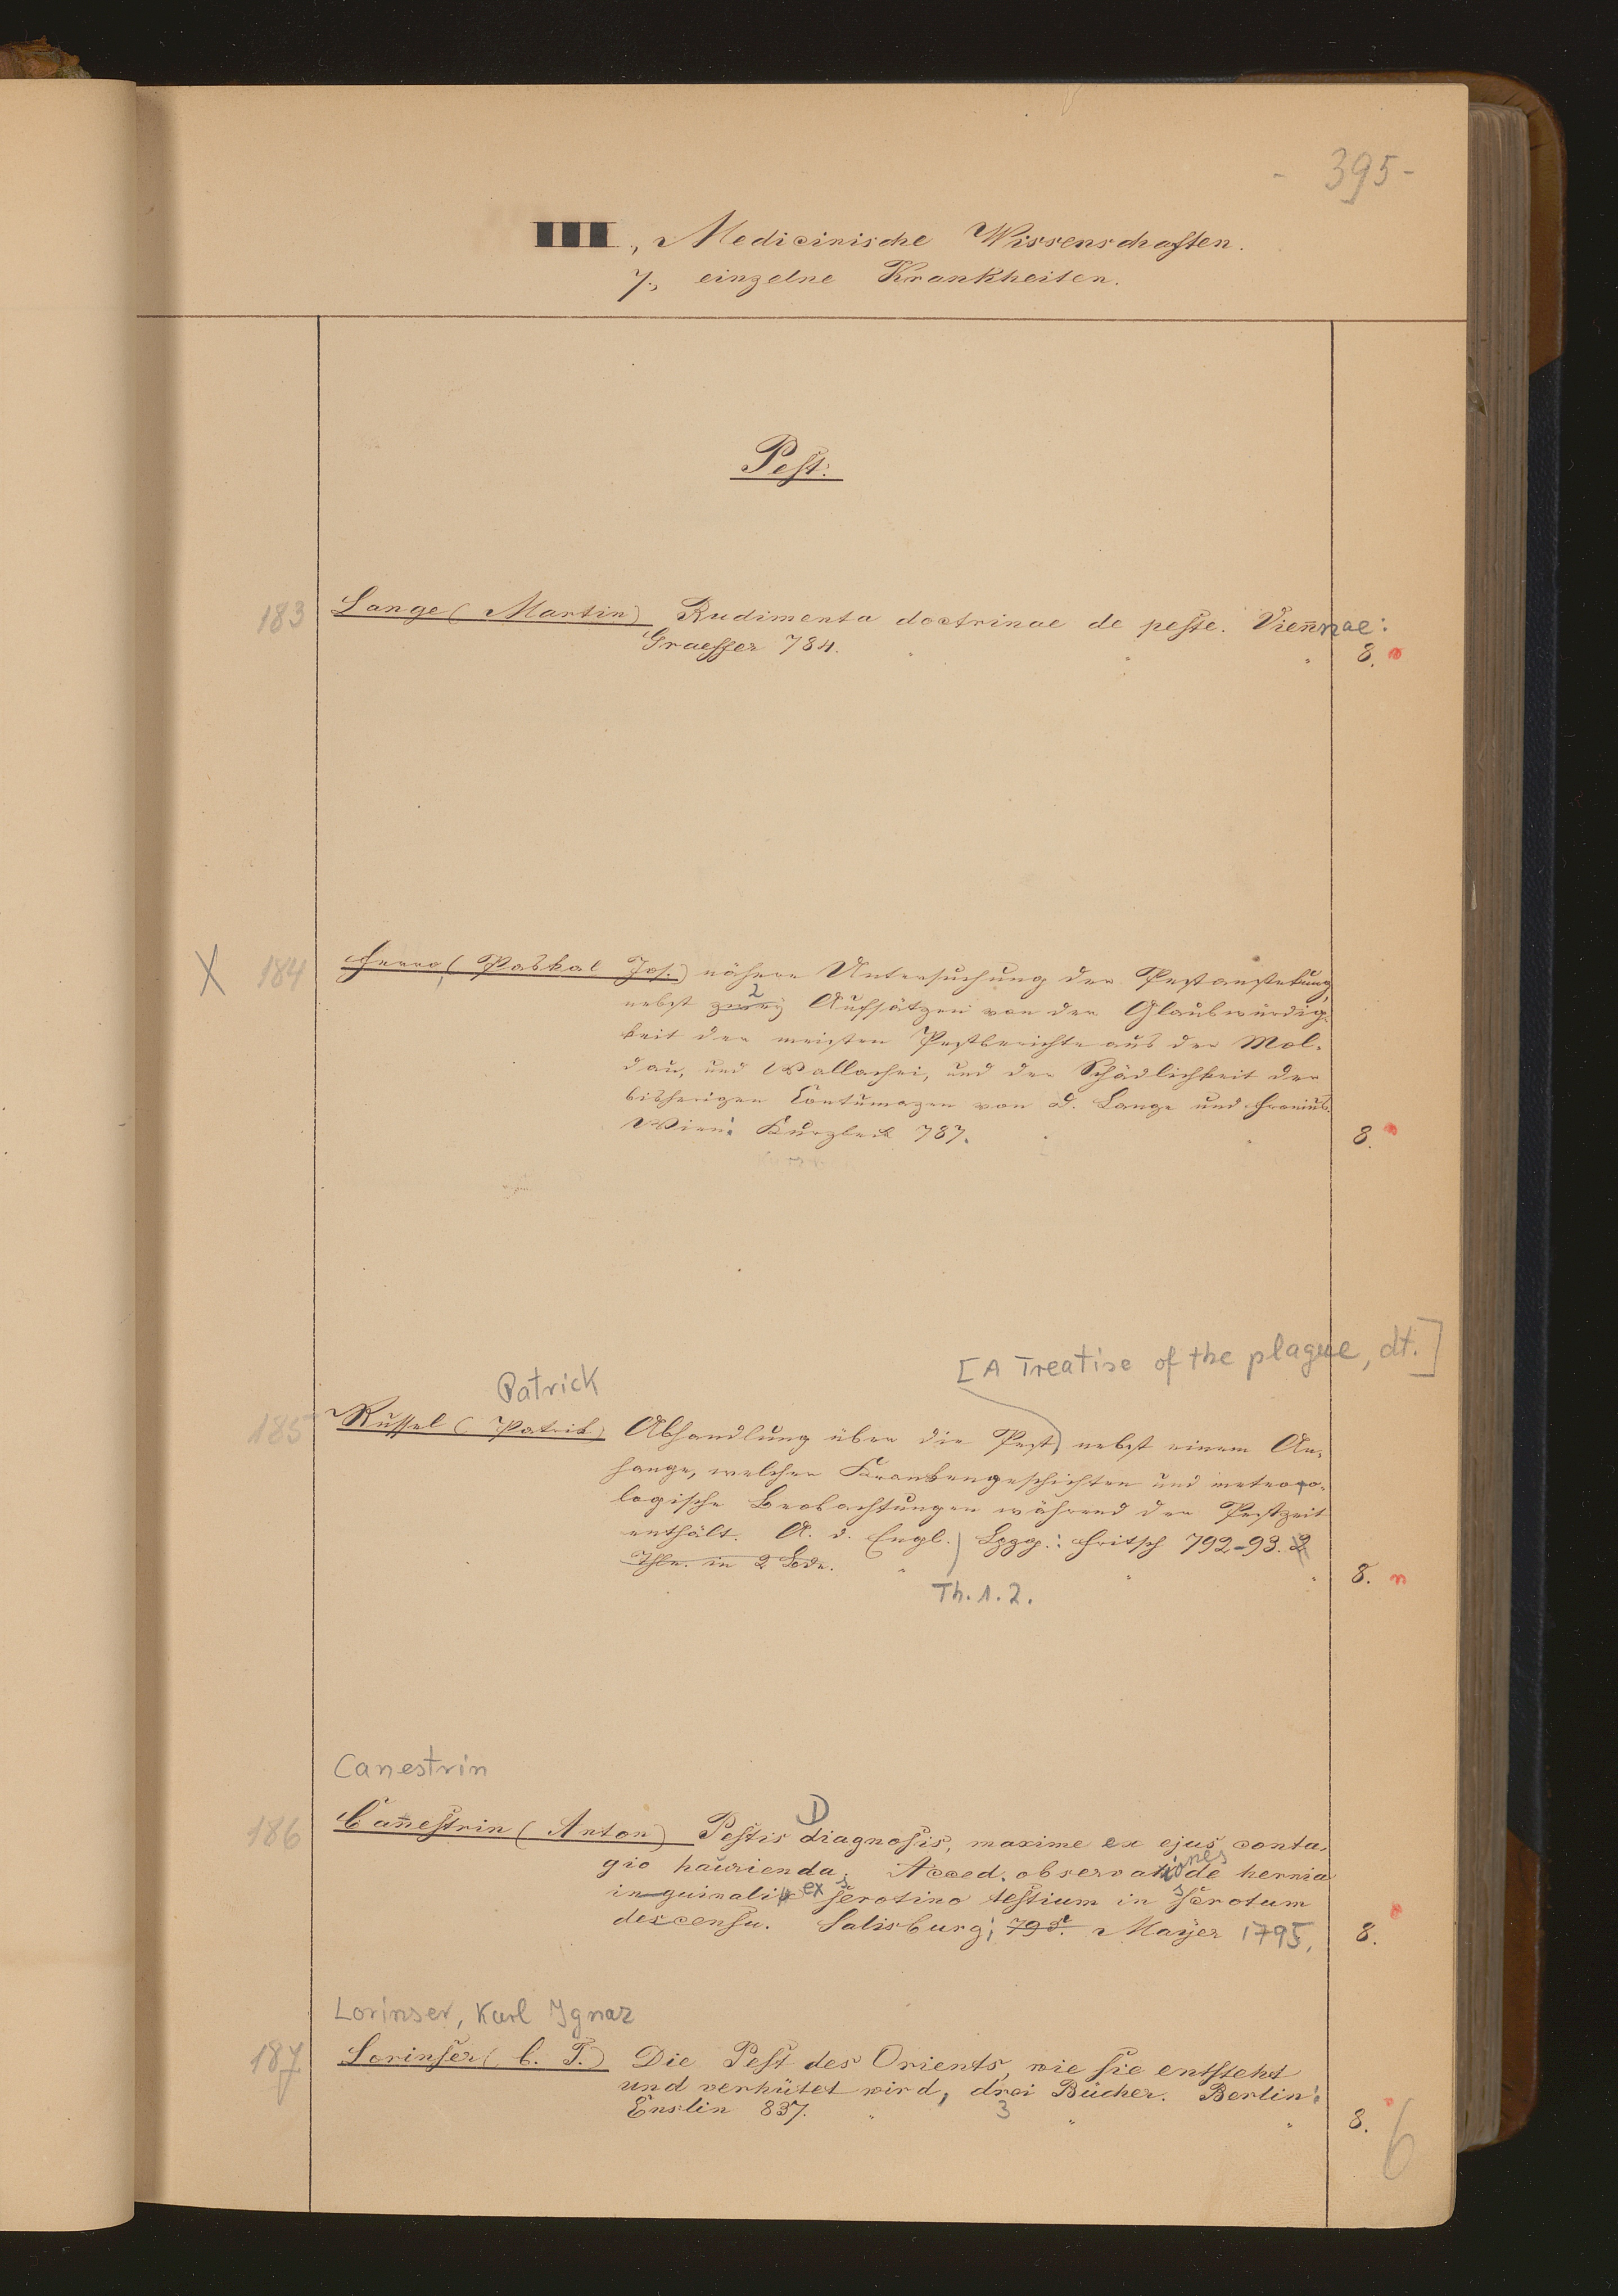 - 395 -
III., Medicinische Wissenschaften.
7., einzelne Krankheiten.
Pest.
183 Lange (Martin) Rudimenta doctrinae de peste. Vieñnae:
Graeffer 784. 8.
X 184 Ferro (Paskal Jos.) nähere Untersuchung der Pestanstekung,
nebst zwey 2 Aufsätzen von der Glaubwürdig-
keit der meisten Pestberichte aus der Mol-
dau, und Wallachei, und der Schädlichkeit der
bisherigen Contumazen von D. Lange und Fronius.
Wien: Kurzbeck 787. 8.
[A Treatise of the plague, dt.]
Patrick
185 Russel (Patrik) Abhandlung über die Pest, nebst einem An-
hange, welcher Krankengeschichten und meteoro-
logische Beobachtungen während der Pestzeit
enthält. A. d. Engl. Lpzg.: Fritsch 792-93. 2
Thle. in 2 Bde. 8. n
Th. 1. 2.
Canestrin
186 Cañestrin (Anton) Pestis Diagnosis, maxime ex ejus conta-
gio haurienda. Acced. observationes de hernia
inguinali ex serotino testium in scrotum
descensu. Salisburg; 795. Mayer 1795. 8.
Lorinser, Karl Ignaz
187 Lorinser (C. I.) Die Pest des Orients, wie sie entsteht
und verhütet wird, drei Bücher. Berlin:
Enslin 837. 3 8.
6